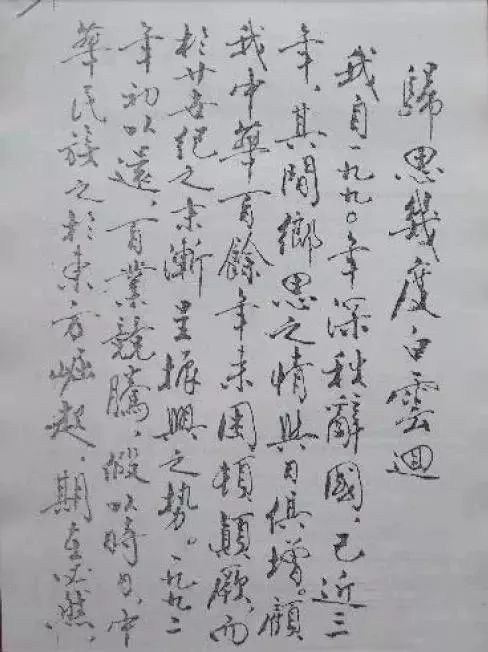 歸思幾度白雲迴
我自一九九〇年深秋辭國,已近三
年,其間鄉思之情與日俱增。顧
我中華百餘年來困頓顛厥,而
於廿世紀之末漸呈振興之勢。一九九二
年初以還,百業競騰,假以時日,中
華民族之於東方崛起,期在必然,